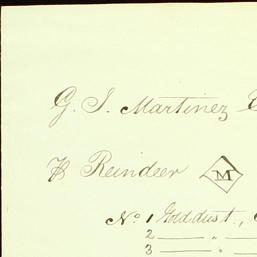 G. S. Martinez
Reindeer M
No. 1 Golddust,
2 — "
3 — "